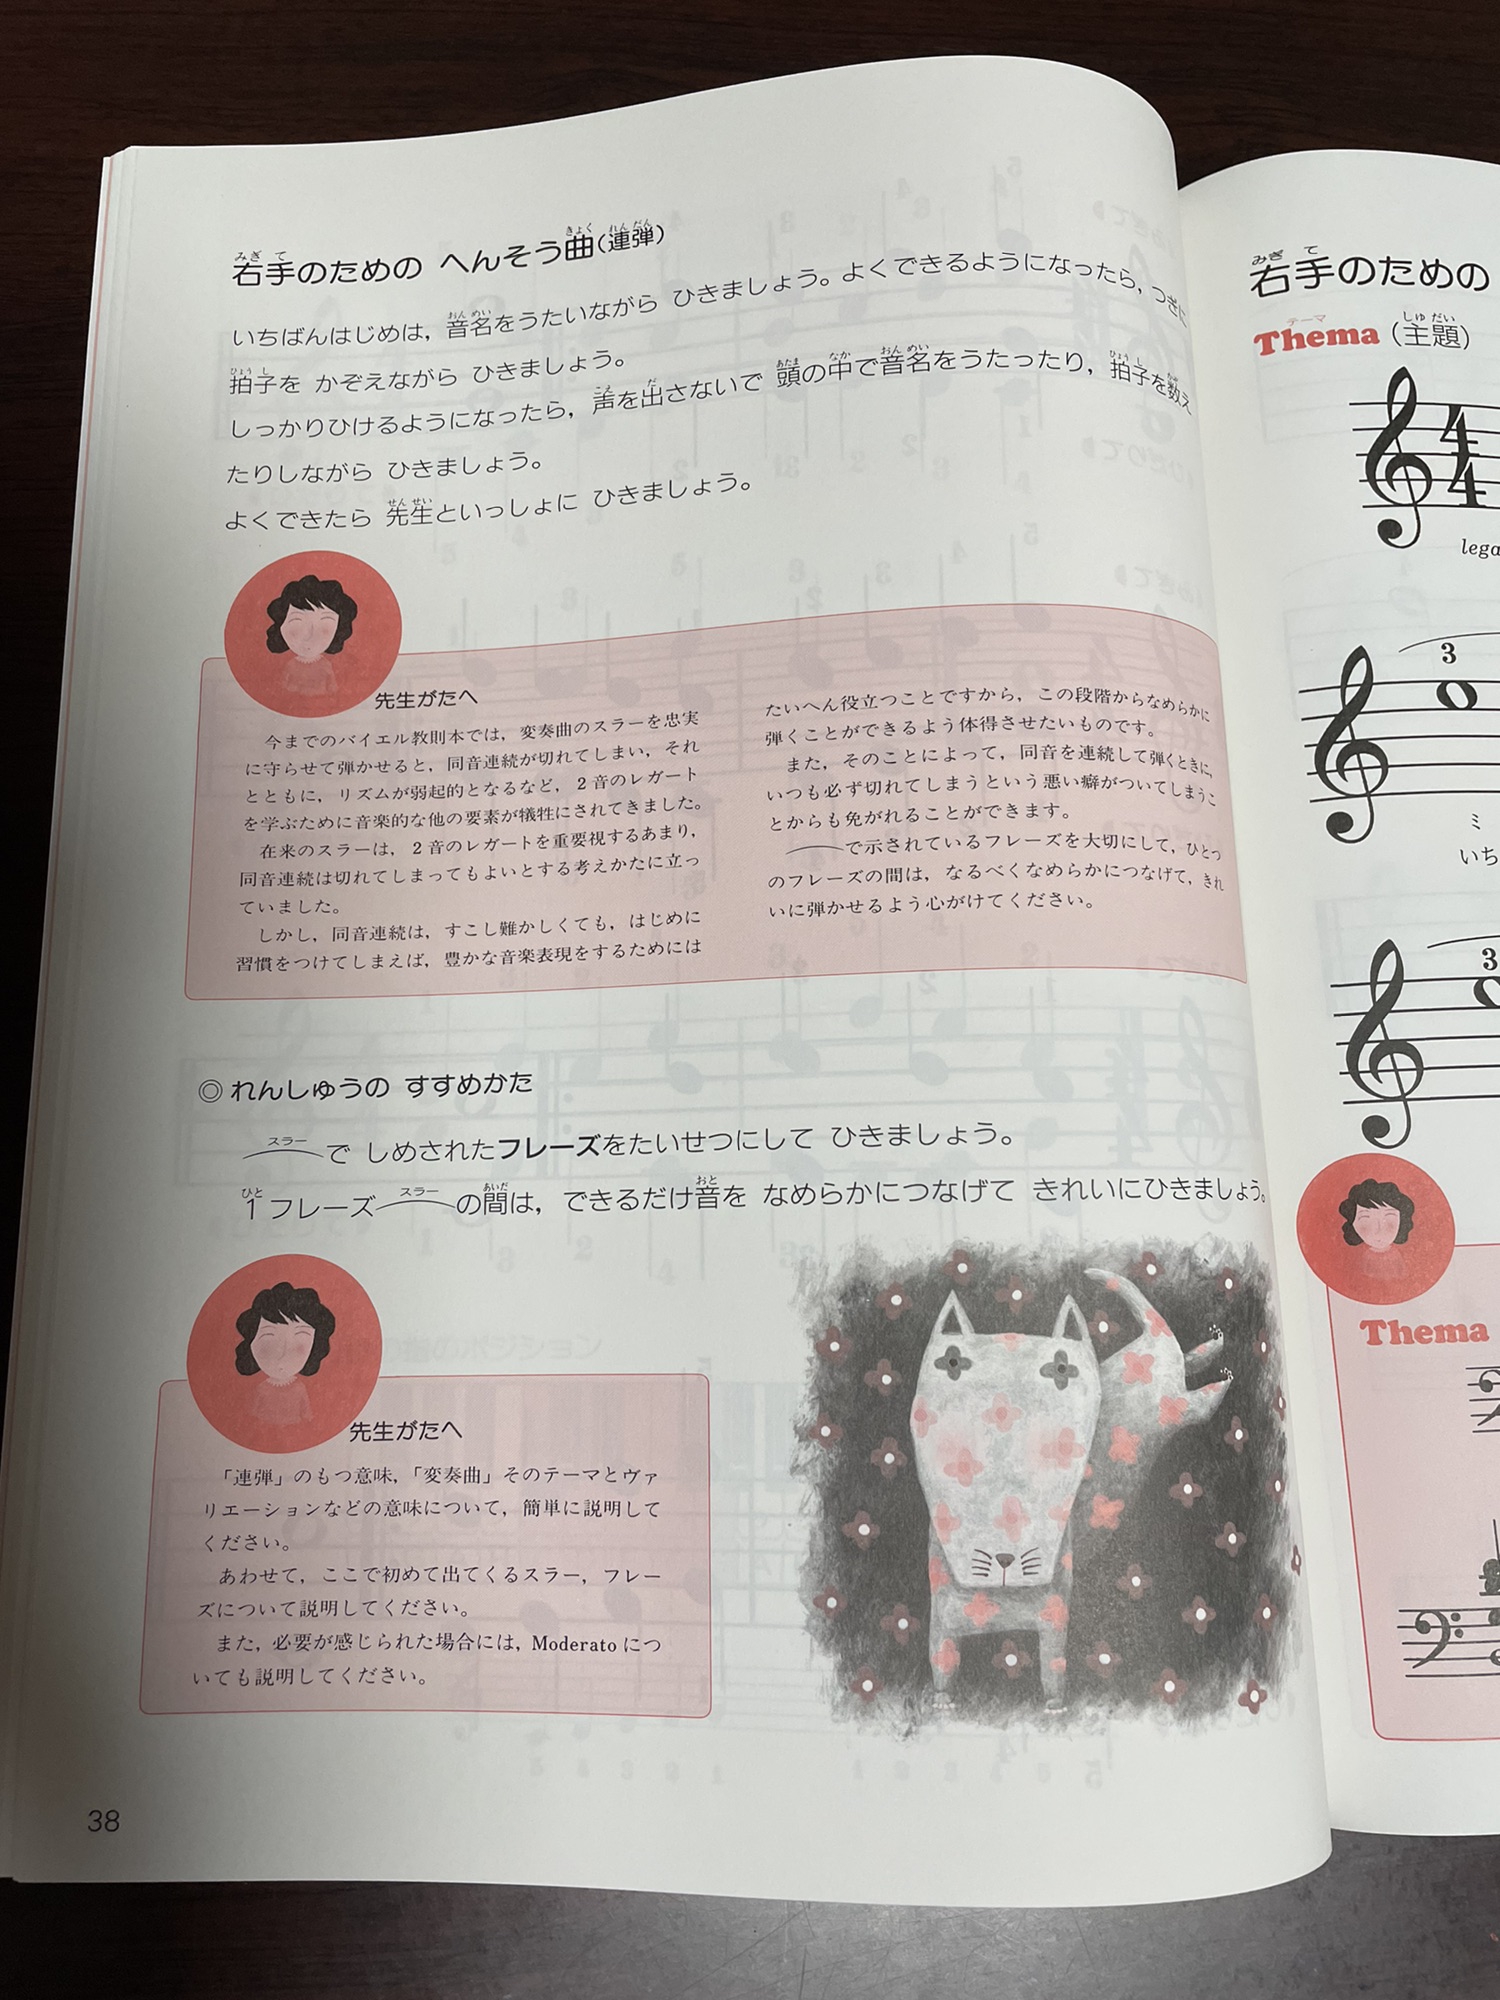 右手のための へんそう曲(連弾)
いちばんはじめは，音名をうたいながら ひきましょう。よくできるようになったら，つぎに
拍子を かぞえながら ひきましょう。
しっかりひけるようになったら，声を出さないで 頭の中で音名をうたったり，拍子を数え
たりしながら ひきましょう。
よくできたら 先生といっしょに ひきましょう。
先生がたへ
今までのバイエル教則本では，変奏曲のスラーを忠実
に守らせて弾かせると，同音連続が切れてしまい，それ
とともに，リズムが弱起的となるなど，2音のレガート
を学ぶために音楽的な他の要素が犠牲にされてきました。
在来のスラーは，2音のレガートを重要視するあまり，
同音連続は切れてしまってもよいとする考えかたに立っ
ていました。
しかし，同音連続は，すこし難かしくても，はじめに
習慣をつけてしまえば，豊かな音楽表現をするためには
たいへん役立つことですから，この段階からなめらかに
弾くことができるよう体得させたいものです。
また，そのことによって，同音を連続して弾くときに，
いつも必ず切れてしまうという悪い癖がついてしまうこ
とからも免がれることができます。
で示されているフレーズを大切にして，ひとつ
のフレーズの間は，なるべくなめらかにつなげて，きれ
いに弾かせるよう心がけてください。
◎れんしゅうの すすめかた
スラー
で しめされたフレーズをたいせつにして ひきましょう。
1フレーズ スラー の間は，できるだけ音を なめらかにつなげて きれいにひきましょう。
先生がたへ
「連弾」のもつ意味，「変奏曲」そのテーマとヴァ
リエーションなどの意味について，簡単に説明して
ください。
あわせて，ここで初めて出てくるスラー，フレー
ズについて説明してください。
また，必要が感じられた場合には，Moderatoにつ
いても説明してください。
38
右手のための
テーマ
Thema (主題)
4
4
lega
3
ミ
いち
3
Thema